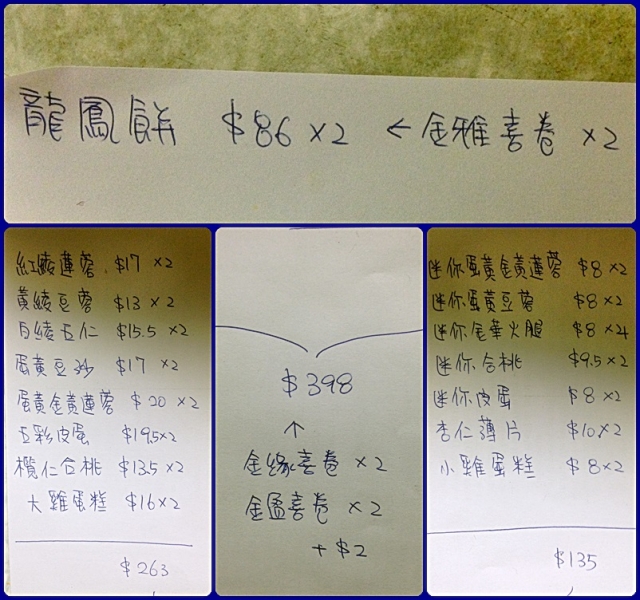 龍鳳餅 $86 ×2 ← 金雅喜卷 ×2
紅綾蓮蓉 $17 ×2
黃綾豆蓉 $13 ×2
白綾五仁 $15.5 ×2
蛋黃豆沙 $17 ×2
蛋黃金黃蓮蓉 $20 ×2
五彩皮蛋 $19.5×2
欖仁合桃 $13.5 ×2
大雞蛋糕 $16×2
$263
$398
↑
金緣喜卷 ×2
金囍喜卷 ×2
+ $2
迷你蛋黃金黃蓮蓉 $8 ×2
迷你蛋黃豆蓉 $8 ×2
迷你金華火腿 $8 ×4
迷你合桃 $9.5 ×2
迷你皮蛋 $8 ×2
杏仁薄片 $10×2
小雞蛋糕 $8×2
$135